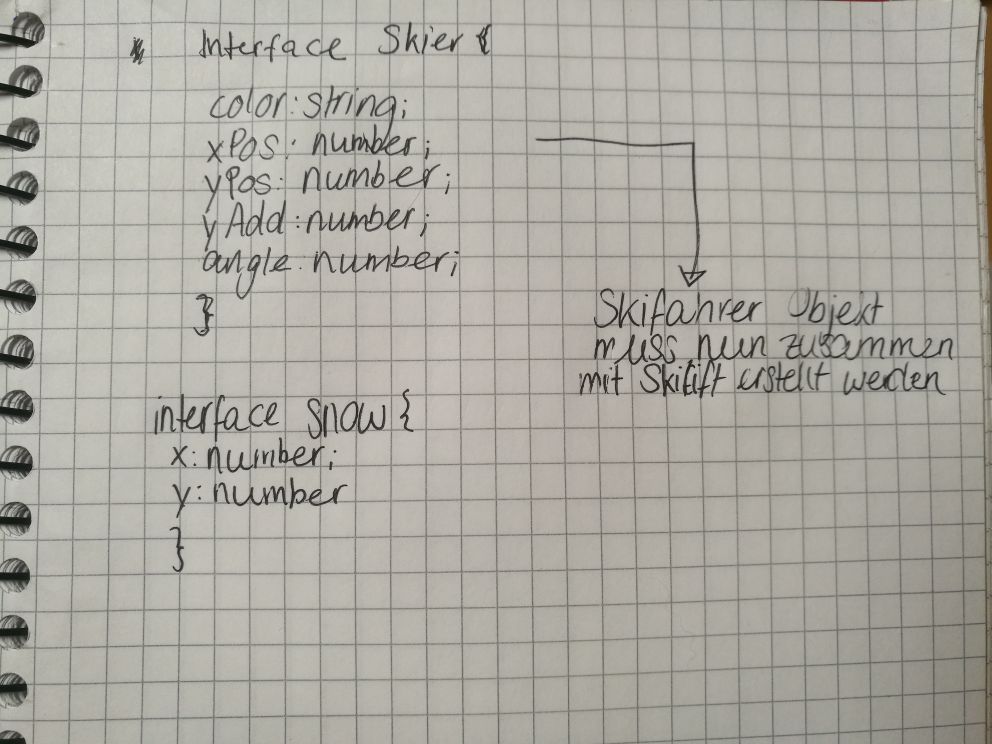 Interface Skier {
color: string;
xPos: number;
yPos: number;
yAdd: number;
angle: number;
}
Skifahrer Objekt
muss nun zusammen
mit Skilift erstellt werden
interface Snow {
x: number;
y: number
}